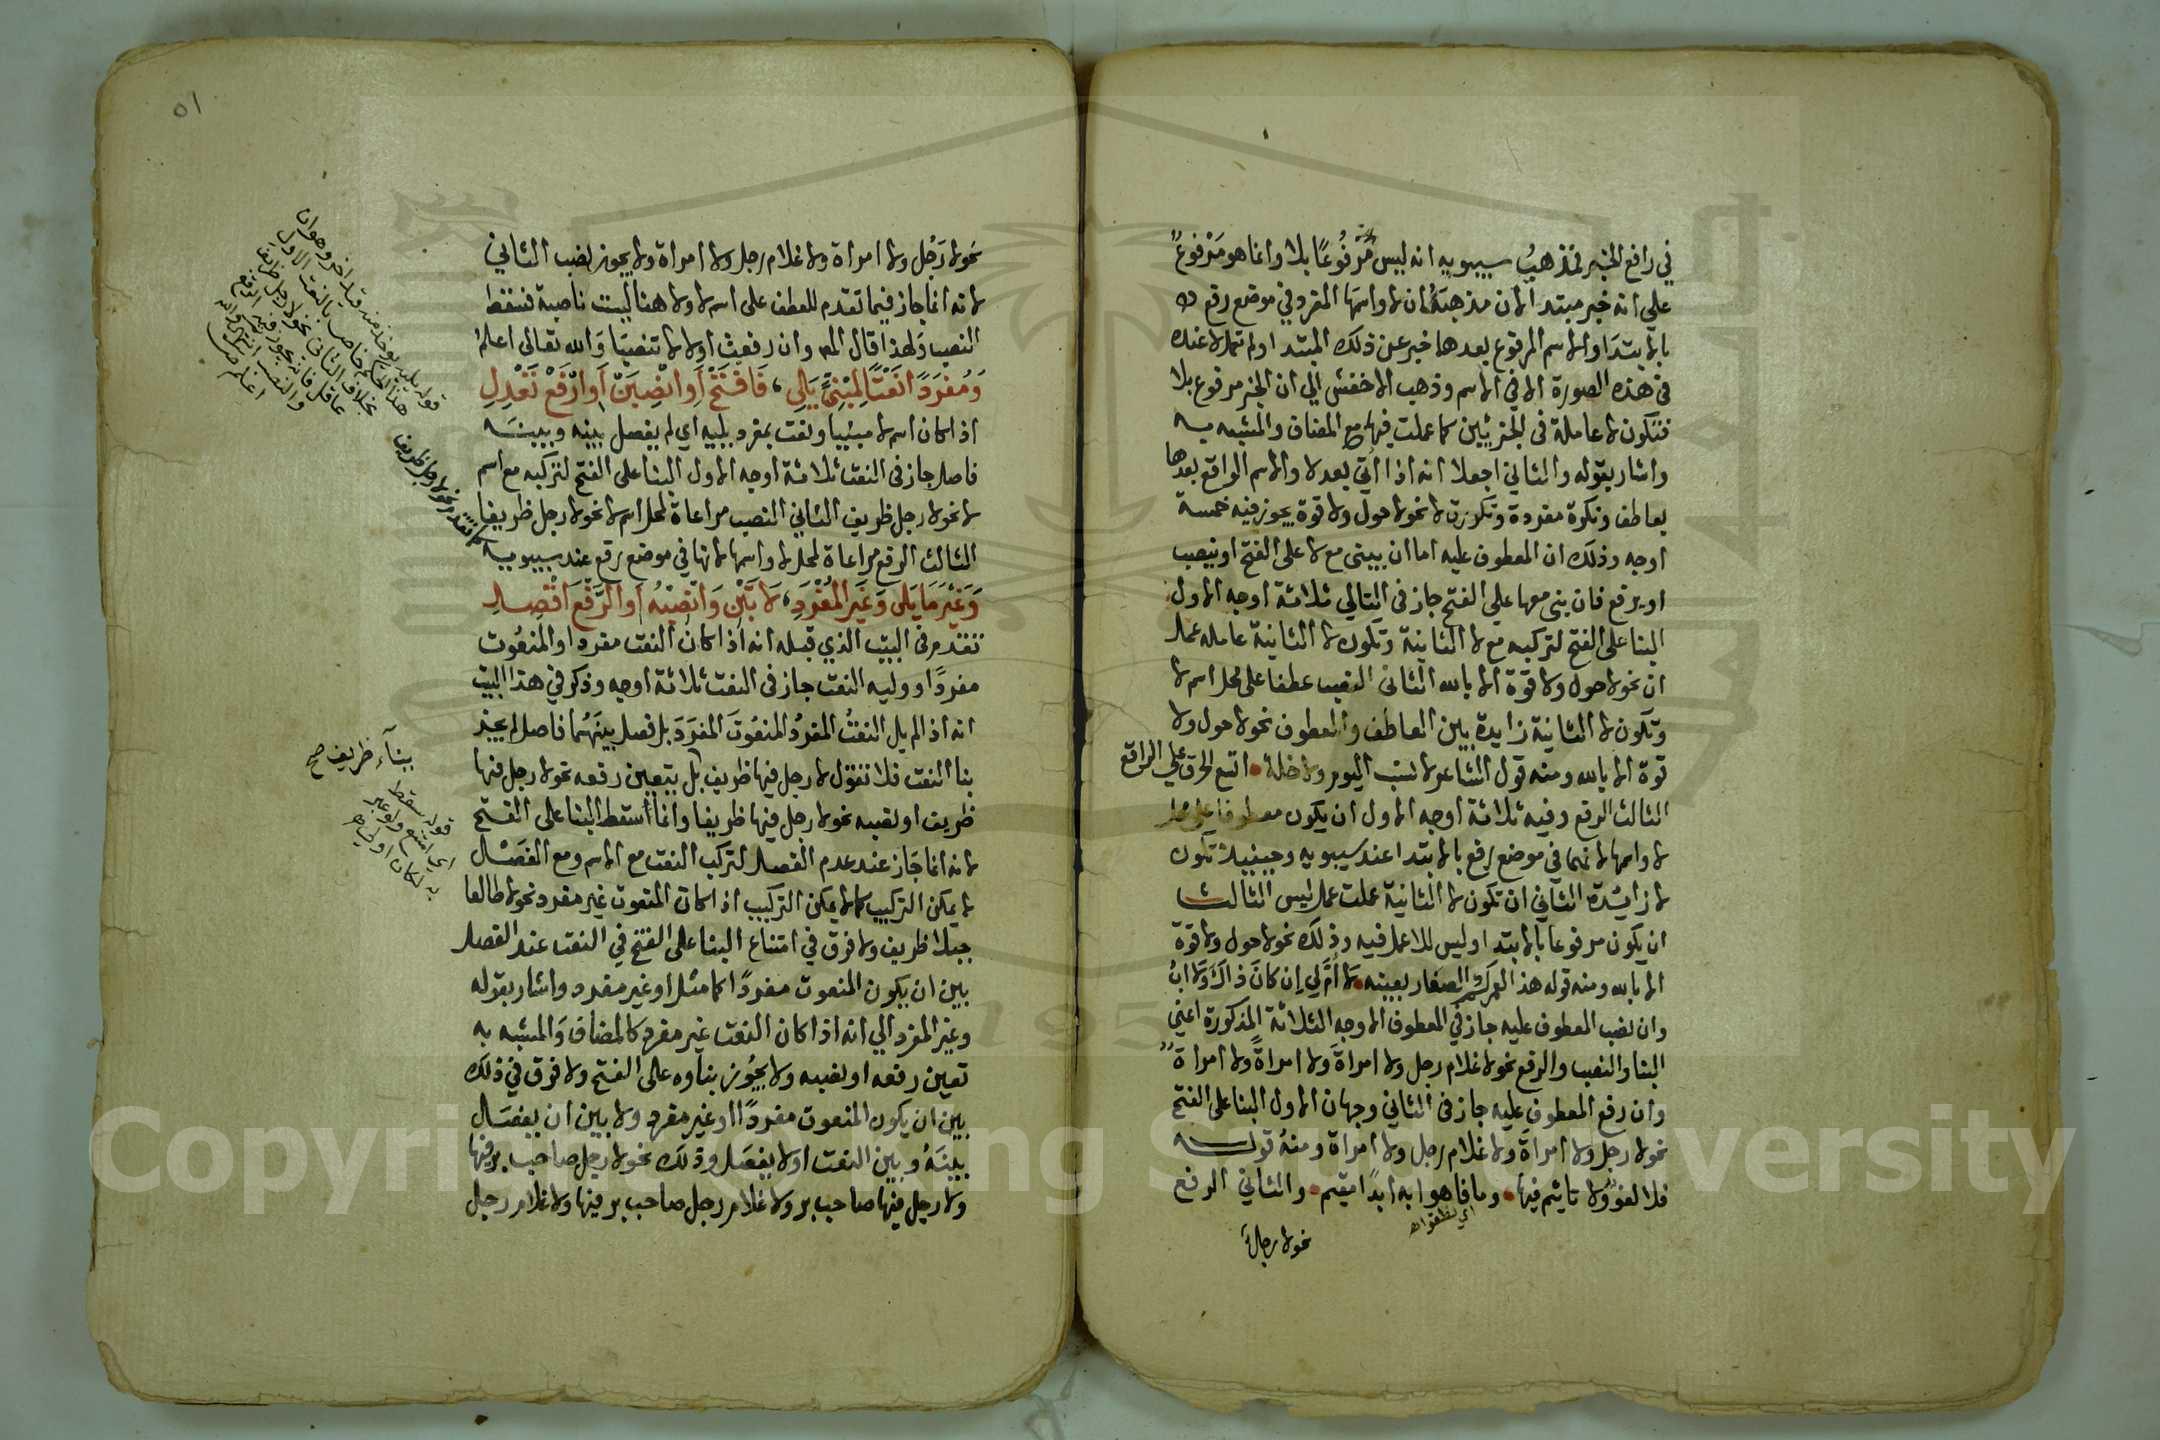 في رافع الخبر فمذهب سيبويه انه ليس مرفوعا بلا وانما هو مرفوع
على انه خبر مبتدا لان مذهبه ان لا واسمها المفرد في موضع رفع
بالابتدا والاسم المرفوع بعدها خبر عن ذلك المبتدا ولم تعمل لا عنده
في هذه الصورة الا في الاسم وذهب الاخفش الي ان الخبر مرفوع بلا
فتكون لا عاملة في الجزئين كما عملت فيها مع المضاف والمشبه به
واشار بقوله والثاني اجعلا انه اذا اتي بعد لا والاسم الواقع بعدها
بعاطف ونكرة مفردة وتكررت لا نحو لا حول ولا قوة يجوز فيه خمسة
اوجه وذلك ان المعطوف عليه اما ان يبنى مع لا على الفتح او ينصب
او يرفع فان بني معها على الفتح جاز في التالي ثلاثة اوجه الاول
البنا على الفتح لتركبه مع لا الثانية وتكون لا الثانية عاملة عمل
ان نحو لا حول ولا قوة الا بالله الثاني النصب عطفا على محل اسم لا
وتكون لا الثانية زايدة بين العاطف والمعطوف نحو لا حول ولا
قوة الا بالله ومنه قول الشاعر لا نسب اليوم ولا خلة اتسع الخرق علي الراقع
الثالث الرفع وفيه ثلاثة اوجه الاول ان يكون معطوفا على محل
لا واسمها لانهما في موضع رفع بالابتدا عند سيبويه وحينيذ تكون
لا زايدة الثاني ان تكون لا الثانية عملت عمل ليس الثالث
ان يكون مرفوعا بالابتدا وليس للا عمل فيه وذلك نحو لا حول ولا قوة
الا بالله ومنه قوله هذا لعمركم الصغار بعينه لا أم لي إن كان ذاك ولا اب
وان نصب المعطوف عليه جاز في المعطوف الاوجه الثلاثة المذكورة اعني
البنا والنصب والرفع نحو لا غلام رجل ولا امراة ولا امراة ولا امراة
وان رفع المعطوف عليه جاز في الثاني وجهان الاول البنا على الفتح
نحو لا رجل ولا امراة ولا غلام رجل ولا امراة ومنه قوله
فلا لغو ولا تاثيم فيها وما فاهوا به ابدا مقيم والثاني الرفع
نحو لا رجل
٥١
نحو لا رجل ولا امراة ولا غلام رجل ولا امراة ولا يجوز نصب الثاني
لانه انما جاز فيما تقدم للعطف على اسم لا ولا هنا ليست ناصبة فسقط
النصب ولهذا قال المص وان رفعت أولا لا تنصبا والله تعالى اعلم
ومفردا نعتا لمبني يلي فافتح أو انصبن أو ارفع تعدل
اذا كان اسم لا مبنيا ونعت بمفرد يليه اي لم يفصل بينه وبينه
فاصل جاز في النعت ثلاثة اوجه الاول البنا على الفتح لتركبه مع اسم
لا نحو لا رجل ظريف الثاني النصب مراعاة لمحل اسم لا نحو لا رجل ظريفا
الثالث الرفع مراعاة لمحل لا واسمها لانها في موضع رفع عند سيبويه
وغير ما يلي وغير المفرد لا تبن وانصبه أو الرفع اقصد
تقدم في البيت الذي قبله انه اذا كان النعت مفردا والمنعوت
مفردا ووليه النعت جاز في النعت ثلاثة اوجه وذكر في هذا البيت
انه اذا لم يل النعت المفرد المنعوت المفرد بل فصل بينهما فاصل لم يجز
بنا النعت فلا تقول لا رجل فيها ظريف بل يتعين رفعه نحو لا رجل فيها
ظريف او نصبه نحو لا رجل فيها ظريفا وانما أسقط البنا على الفتح
لانه انما جاز عند عدم الفصل لتركب النعت مع الاسم ومع الفصل
لا يمكن التركيب كما لا يمكن التركيب اذا كان المنعوت غير مفرد نحو لا طالعا
جبلا ظريف ولا فرق في امتناع البنا على الفتح في النعت عند الفصل
بين ان يكون المنعوت مفردا كما مثل او غير مفرد واشار بقوله
وغير المفرد الي انه اذا كان النعت غير مفرد كالمضاف والمشبه به
تعين رفعه او نصبه ولا يجوز بناوه على الفتح ولا فرق في ذلك
بين ان يكون المنعوت مفردا او غير مفرد ولا بين ان يفصل
بينه وبين النعت اولا يفصل وذلك نحو لا رجل صاحب بر فيها
ولا رجل فيها صاحب بر ولا غلام رجل صاحب بر فيها ولا غلام رجل
بناء ظريف صح
Copyright © King Saud University